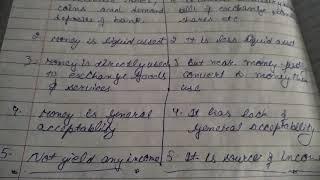 coins and demand
deposits of bank.
bills of exchange
shares etc.
2. Money is liquid asset
2. It is less liquid asset
3. Money is directly used
to exchange goods
& services
3. But near money
convert to money then
use
4. Money is general
acceptability
4. It has lack of
general acceptability
5. Not yield any income
5. It is source of income